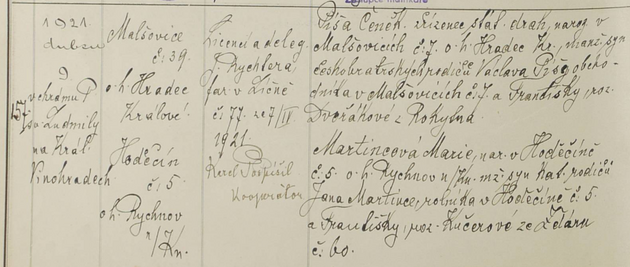 157.
1921.
dubna
9
v chrámu P
sv. Ludmily
na Král.
Vinohradech
Malšovice
č. 39.
o. h. Hradec
Králové.
Hoděčín
č. 5.
o. h. Rychnov
n/Kn.
Licencí a deleg.
J. Rychtera
far. v Jičně
č. 77. ze 7/IV
1921
Karel Pospíšil
kooperátor
Píša Čeněk. zřízenec stát. drah, naroz. v
Malšovicích č. 7. o. h. Hradec Kr., manž. syn
českobratrských rodičů Václava Píši, obcho-
dníka v Malšovicích č. 7. a Františky, roz.
Dvořákové z Rokytna.
Martincova Marie, nar. v Hoděčíně
č. 5. o. h. Rychnov n/Kn. mž. syn kat. rodičů
Jana Martince, rolníka v Hoděčíně č. 5.
a Františky, roz. Kučerové ze Žďáru
č. 60.